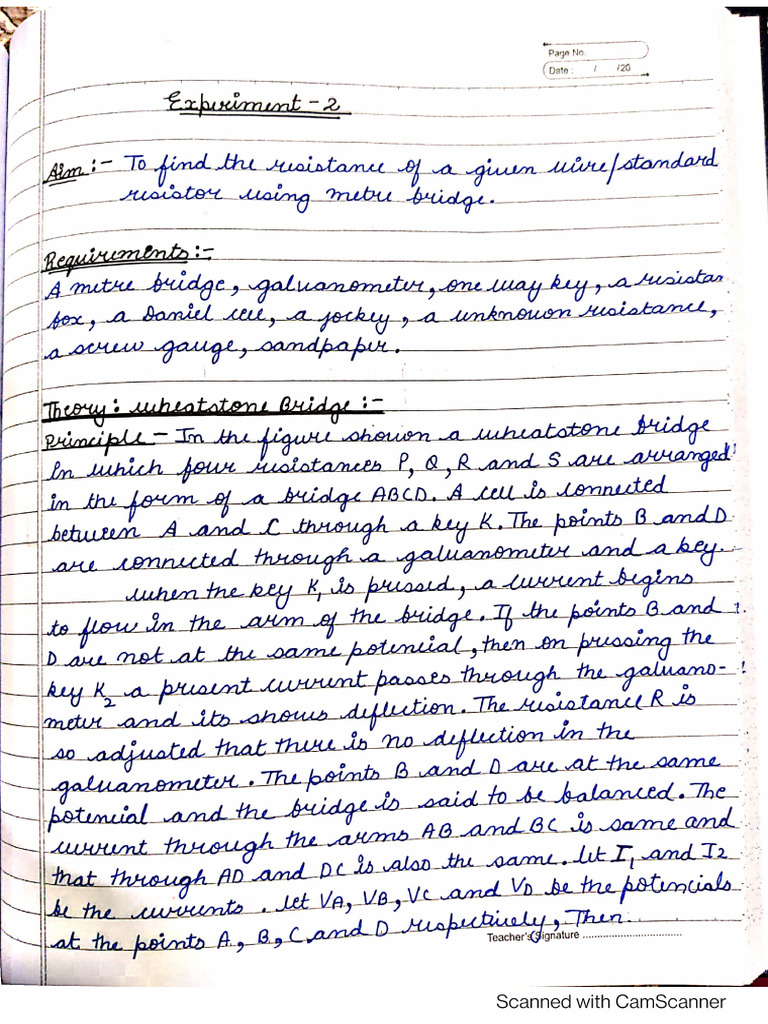 Page No.
Date : / /20
Experiment - 2
Aim :- To find the resistance of a given wire/standard
resistor using metre bridge.
Requirements :-
A metre bridge, galvanometer, one way key, a resistan
box, a Daniel cell, a jockey, a unknown resistance,
a screw gauge, sandpaper.
Theory: Wheatstone Bridge :-
Principle - In the figure shown a wheatstone bridge
In which four resistances P, Q, R and S are arranged
in the form of a bridge ABCD. A cell is connected
between A and C through a key K. The points B and D
are connected through a galvanometer and a key.
When the key K1 is pressed, a current begins
to flow in the arm of the bridge. If the points B and
D are not at the same potencial, then on pressing the
key K2 a present current passes through the galvano-
meter and its shows deflection. The resistance R is
so adjusted that there is no deflection in the
galvanometer. The points B and D are at the same
potencial and the bridge is said to be balanced. The
current through the arms AB and BC is same and
that through AD and DC is also the same. Let I1 and I2
be the currents. Let VA, VB, VC and VD be the potencials
at the points A, B, C and D respectively, Then.
Teacher's Signature ..........................
Scanned with CamScanner